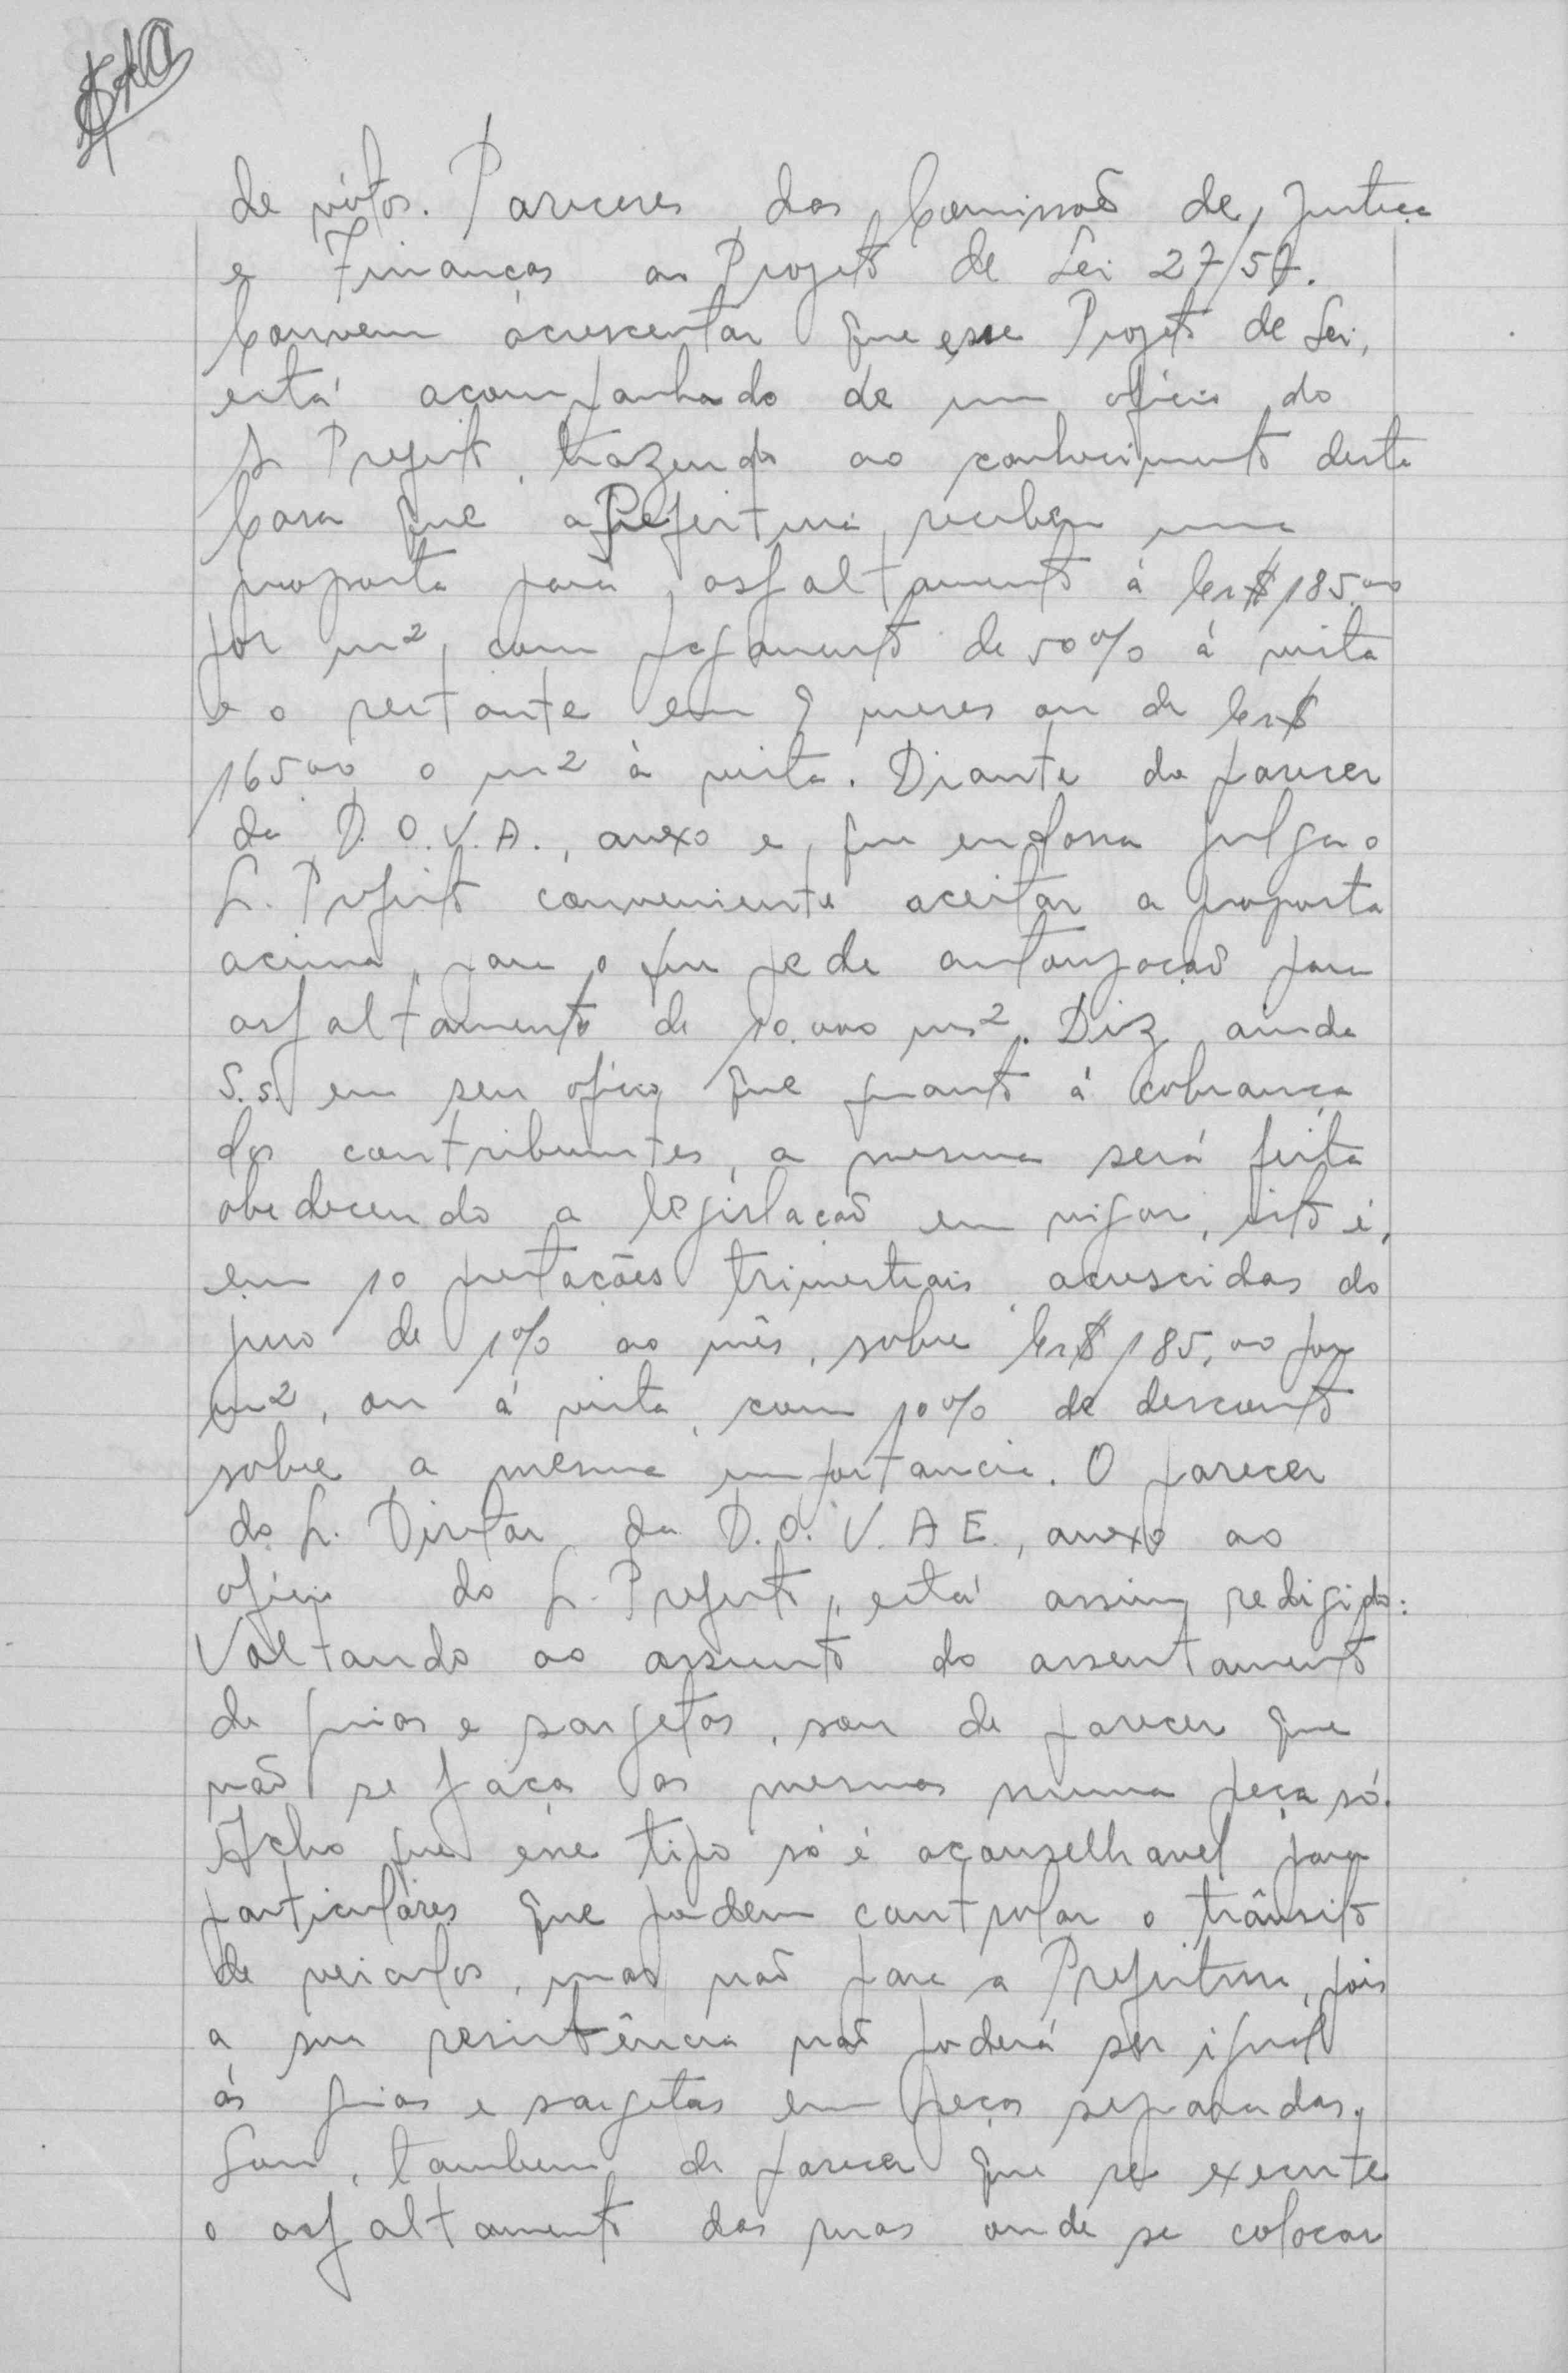 de vótos. Pareceres das Comissaõ de Justiça
e Finanças ao Projeto de Lei 27/57.
Convem acrescentar que esse Projeto de Lei,
está acompanhado de um oficio do
Sr Prefeito, trazendo ao conhecimento desta
Casa que a Prefeitura recebeu uma
proposta para asfaltamento á Cr$ 185,00
por m², com pagamento de 50% á vista
e o restante em 9 meses ou de Cr$
165,00 o m² à vista. Diante do parecer
da D.O.V.A., anexo e que endossa julga o
S. Prefeito conveniente aceitar a proposta
acima, para o que pede autorizaçaõ para
asfaltamento de 10.000 ms². Diz ainda
S.s. em seu oficio que quanto á cobrança
dos contribuintes, a mesma será feita
obedecendo a legislaçaõ em vigor, isto é,
em 10 prestações trimestrais acrescidas do
juro de 1% ao mês, sobre Cr$ 185,00 por
m², ou á vista, com 10% de desconto
sobre a mesma importancia. O parecer
do S. Diretor da D.O.V.A E., anexo ao
oficio do S. Prefeito, está assim redigido:
Voltando ao assunto do assentamento
de guias e sargetas, sou de parecer que
naõ se faça as mesmas numa peça só.
Acho que êsse tipo só é aconselhavel para
particuláres que podem controlar o trânsito
de veiculos, mas naõ para a Prefeitura, pois
a sua resistência naõ poderá ser igual
ás guias e sargetas em peças separadas.
Sou, tambem, de parecer que se execute
o asfaltamento das ruas onde se colocar